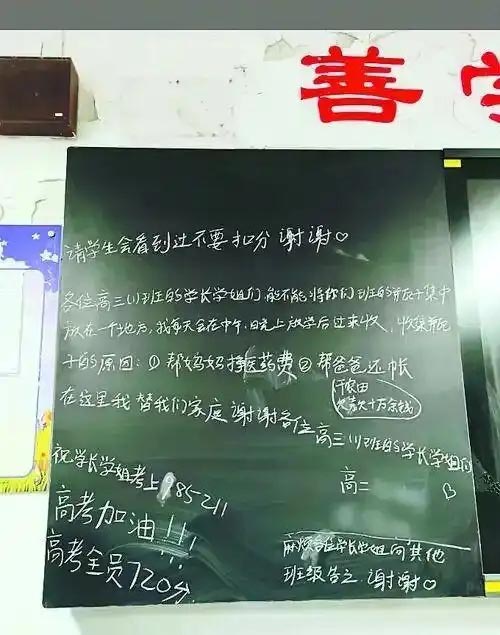 善学
请学生会看到过不要扣分 谢谢♡
各位高三(1)班的学长学姐们,能不能将你们班的瓶子集中
放在一个地方,我每天会在中午、晚上放学后过来收,收集瓶
子的原因:①帮妈妈挣医药费②帮爸爸还帐
在这里我替我们家庭谢谢各位
(干农田
欠款十万余钱)
高三(1)班的学长学姐们
高二
祝学长学姐考上985-211
高考加油!!!
高考全员720分
麻烦各位学长学姐向其他
班级告之 谢谢♡